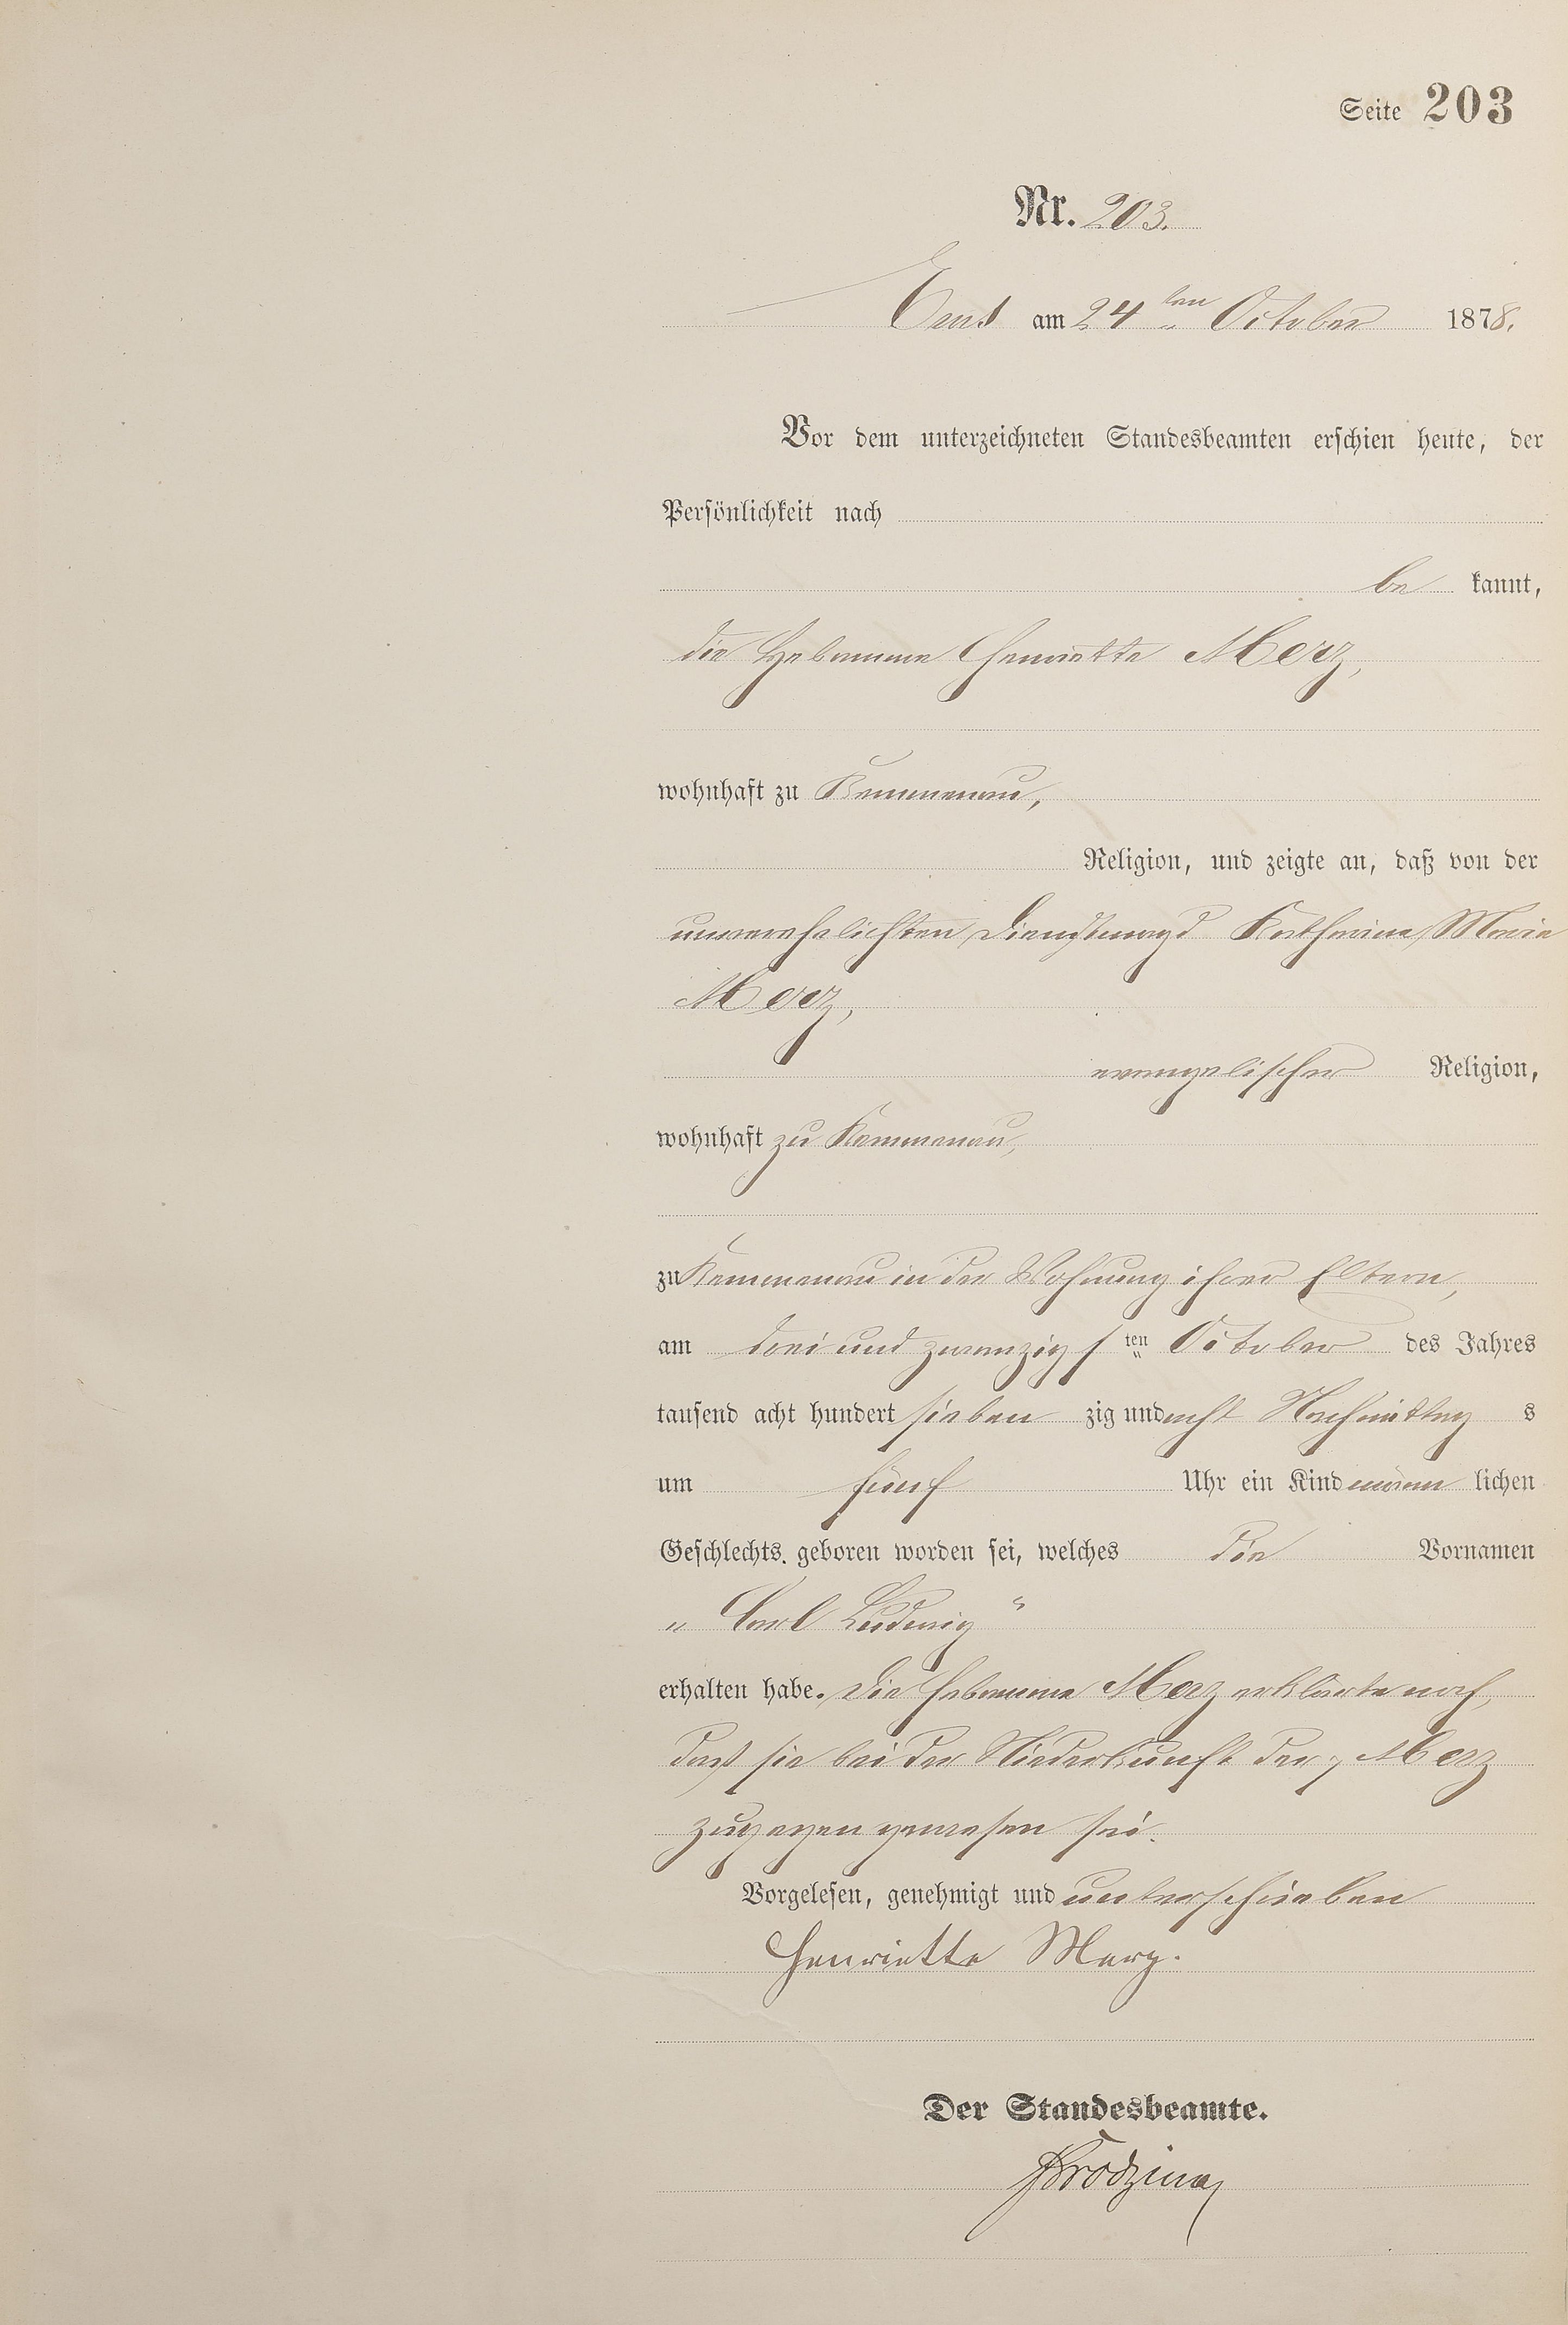 Seite 203
Nr. 203.
Ems am 24ten October 1878.
Vor dem unterzeichneten Standesbeamten erschien heute, der
Persönlichkeit nach
be kannt,
die Hebamme Henriette Merz,
wohnhaft zu Kemmenau,
Religion, und zeigte an, daß von der
unverehelichten Dienstmagd Katharina Marie
Merz,
evangelischer Religion,
wohnhaft zu Kemmenau,
zu Kemmenau in der Wohnung ihrer Eltern,
am drei und zwanzigsten October des Jahres
tausend acht hundert sieben zig und acht Nachmittag s
um fünf Uhr ein Kind männ lichen
Geschlechts geboren worden sei, welches die Vornamen
„Carl Ludwig“
erhalten habe. Die Hebamme Merz erklärte noch,
daß sie bei der Niederkunft der Merz
zugegen gewesen sei.
Vorgelesen, genehmigt und unterschrieben
Henriette Merz.
Der Standesbeamte.